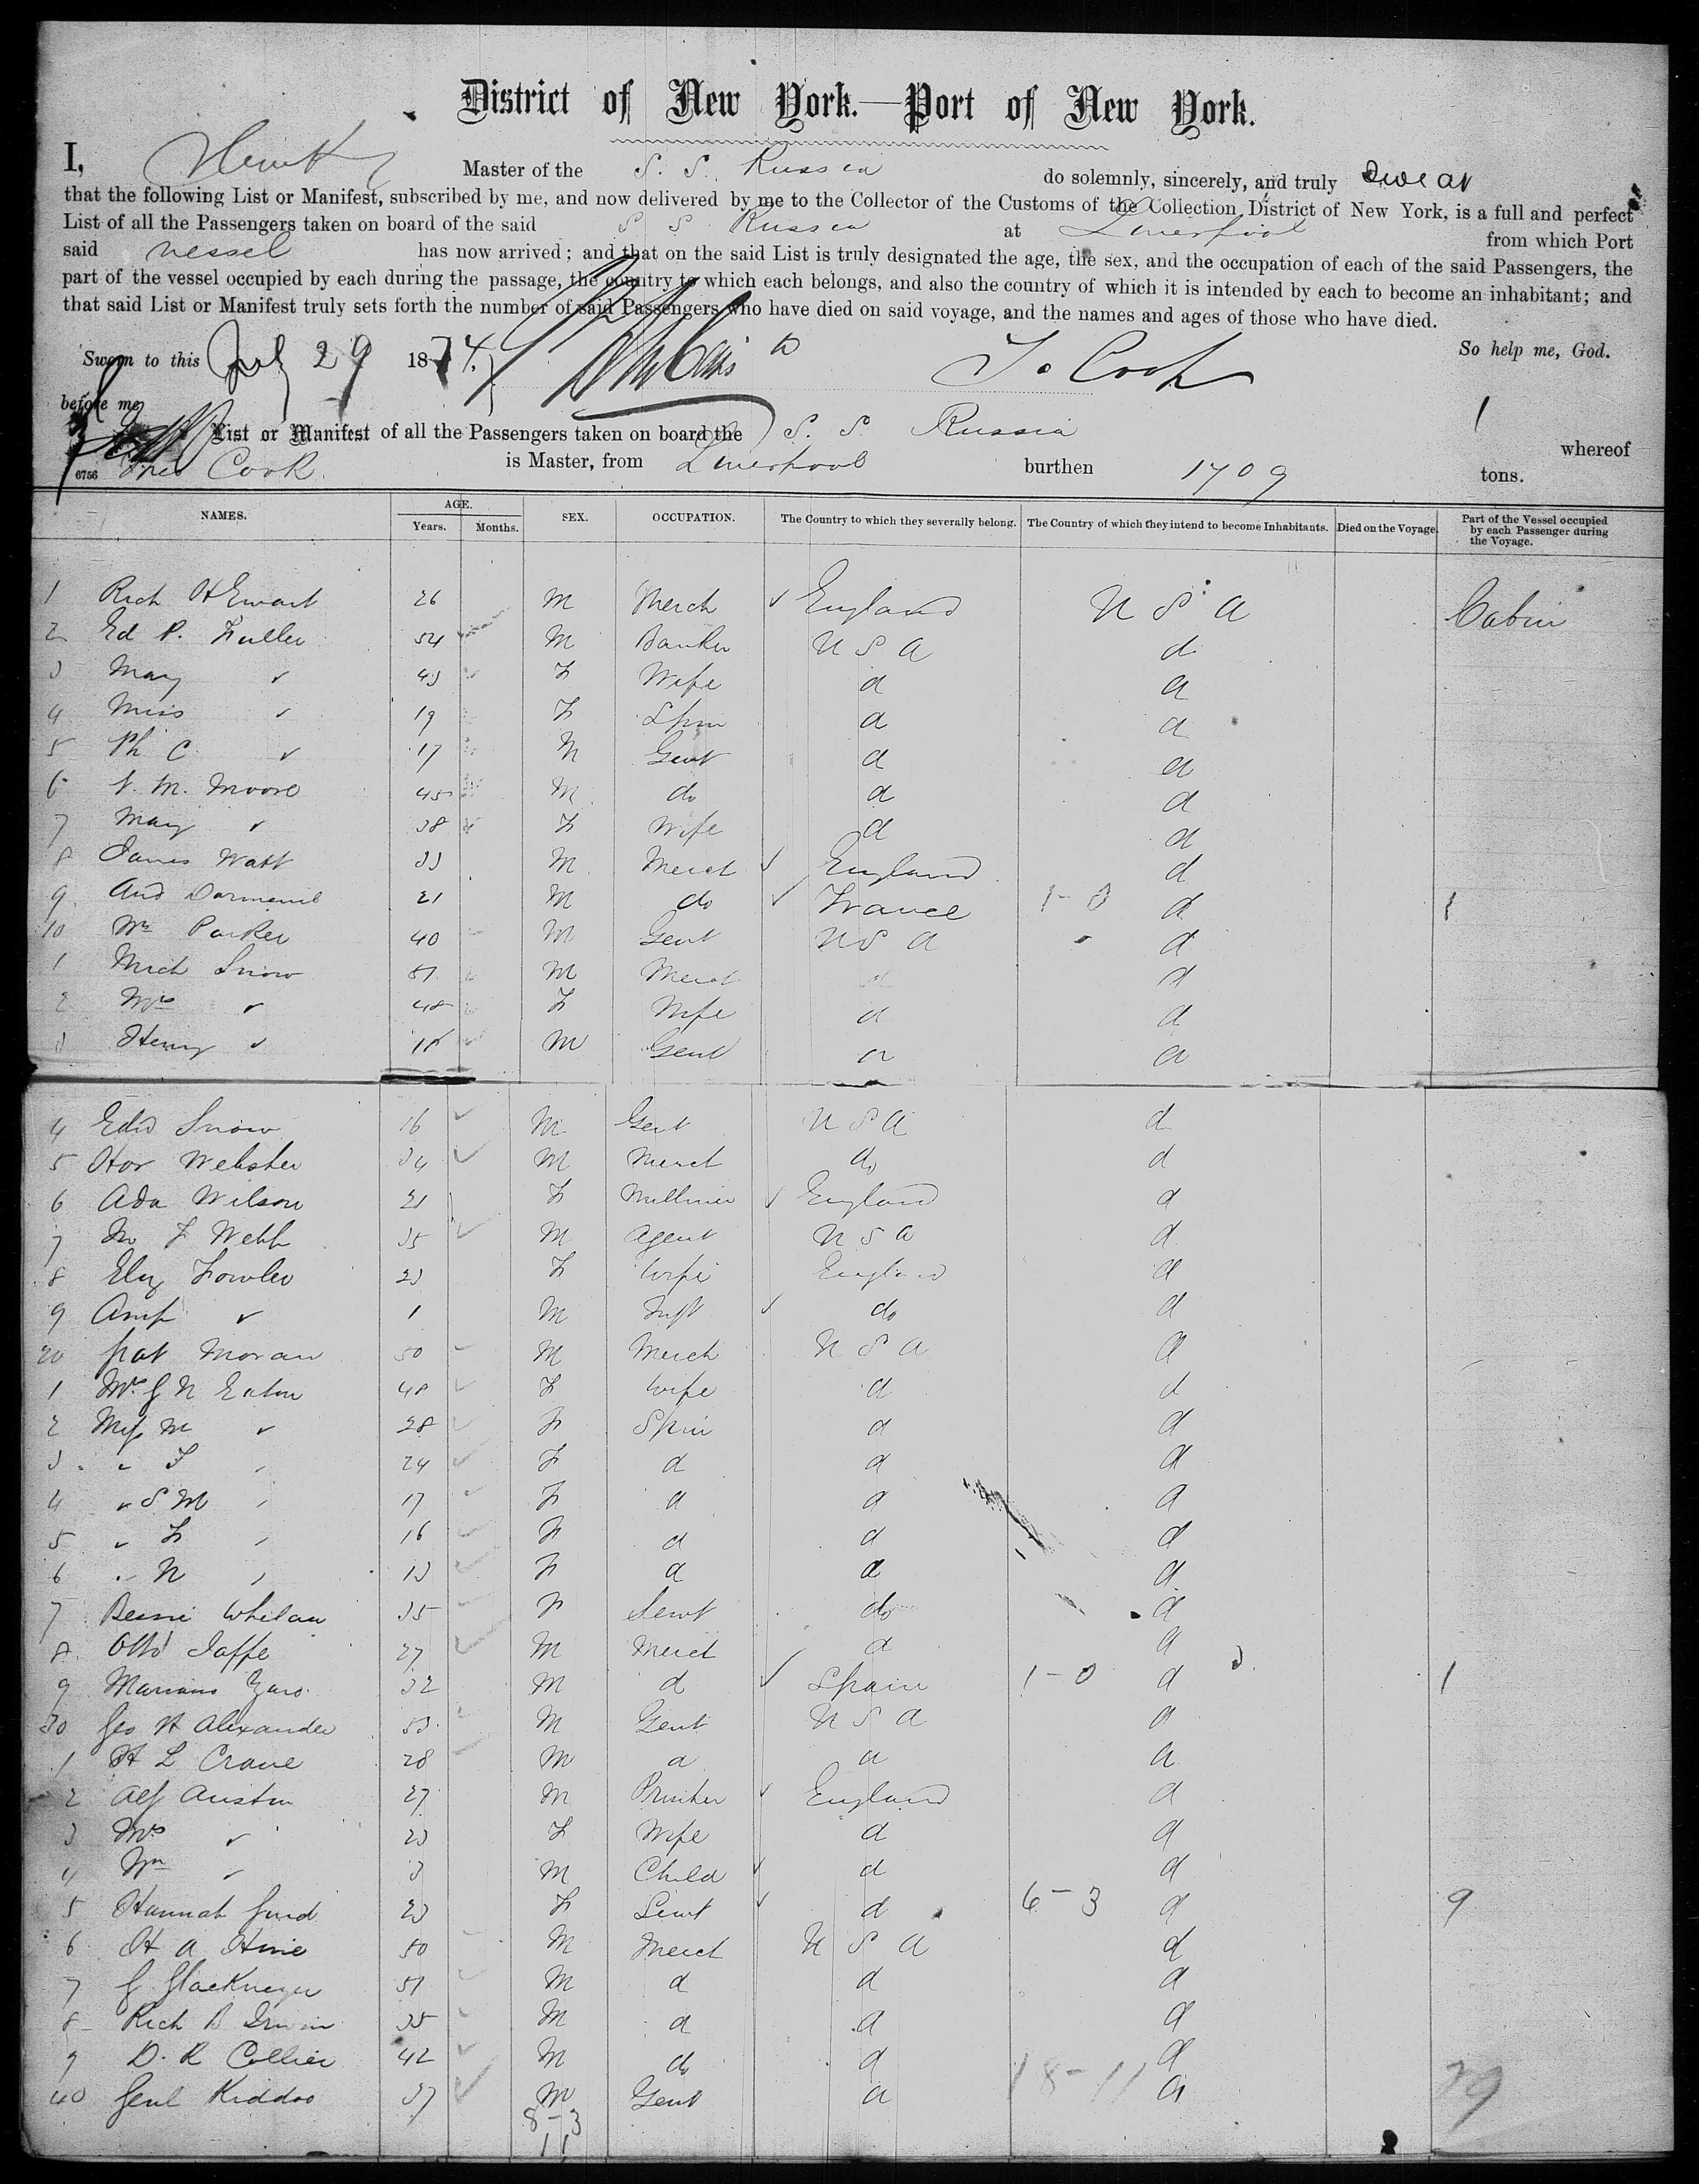 District of New York.—Port of New York.
I, Master of the S. S. Russia do solemnly, sincerely, and truly swear
that the following List or Manifest, subscribed by me, and now delivered by me to the Collector of the Customs of the Collection District of New York, is a full and perfect
List of all the Passengers taken on board of the said S S Russia at Liverpool from which Port
said vessel has now arrived; and that on the said List is truly designated the age, the sex, and the occupation of each of the said Passengers, the
part of the vessel occupied by each during the passage, the country to which each belongs, and also the country of which it is intended by each to become an inhabitant; and
that said List or Manifest truly sets forth the number of said Passengers who have died on said voyage, and the names and ages of those who have died.
So help me, God.
Sworn to this July 29 1874. T. Cook
before me
List or Manifest of all the Passengers taken on board the S. S. Russia whereof
6756 Theo Cook is Master, from Liverpool burthen 1709 tons.
NAMES. AGE. Years. Months. SEX. OCCUPATION. The Country to which they severally belong. The Country of which they intend to become Inhabitants. Died on the Voyage. Part of the Vessel occupied by each Passenger during the Voyage.
1 Rich H Ewart 26 M Merch England U S A Cabin
2 Ed P. Fuller 54 M Banker U S A d
3 Mary " 43 F Wife d d
4 Miss " 19 F Spin d d
5 Ph C " 17 M Gent d d
6 M. Moore 45 M do d d
7 Mary " 38 F Wife d d
8 James Watt 33 M Merct England d
9 And 21 M do France 1-0 d 1
10 Wm Parker 40 M Gent U S A d
1 Mich Snow 51 M Merct d d
2 Mrs " 48 F Wife d d
3 Henry " 18 M Gent d d
4 Edw Snow 16 M Gent U S A d
5 Hor Webster 34 M Merct do d
6 Ada Wilson 21 F Milliner England d
7 Jno F Webb 35 M Agent U S A d
8 Eliz Fowler 23 F Wife England d
9 " 1 M Inft do d
20 Pat Moran 50 M Merch U S A d
1 Mrs G N Eaton 48 F Wife d d
2 Miss M " 28 F Spin d d
3 " F " 24 F d d d
4 " S M " 17 F d d d
5 " F " 16 F d d d
6 " N " 13 F d d d
7 Bessie Whelan 35 F Servt do d
8 Otto Jaffe 27 M Merct d d
9 Mariano 32 M d Spain 1-0 d 1
30 Geo H Alexander 53 M Gent U S A d
1 H L Crane 28 M d d d
2 Alf Austin 27 M Printer England d
3 Mrs " 23 F Wife d d
4 Wm " 3 M Child d d
5 Hannah 23 F Servt d 6-3 d 9
6 H A Hine 50 M Merct U S A d
7 G Glackmeyer 51 M d d d
8 Rich B Irwin 35 M d d d
9 D. R Collier 42 M do d d
40 Genl Kiddoo 37 M Gent d 18-11 d 29
8-3
11